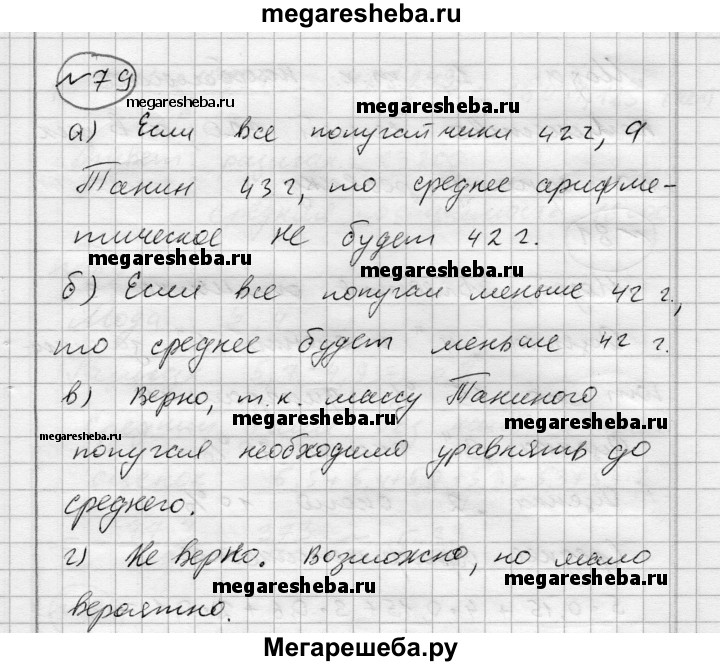 megaresheba.ru
№79
megaresheba.ru
megaresheba.ru
а) Если все попугайчики 42 г, а
Танин 43 г, то среднее арифме-
тическое не будет 42 г.
megaresheba.ru
megaresheba.ru
б) Если все попугаи меньше 42 г.,
то среднее будет меньше 42 г.
в) Верно, т.к. массу Таниного
megaresheba.ru
megaresheba.ru
megaresheba.ru
попугая необходимо уравнять до
среднего.
г) Не верно. Возможно, но мало
megaresheba.ru
megaresheba.ru
вероятно.
Мегарешеба.ру